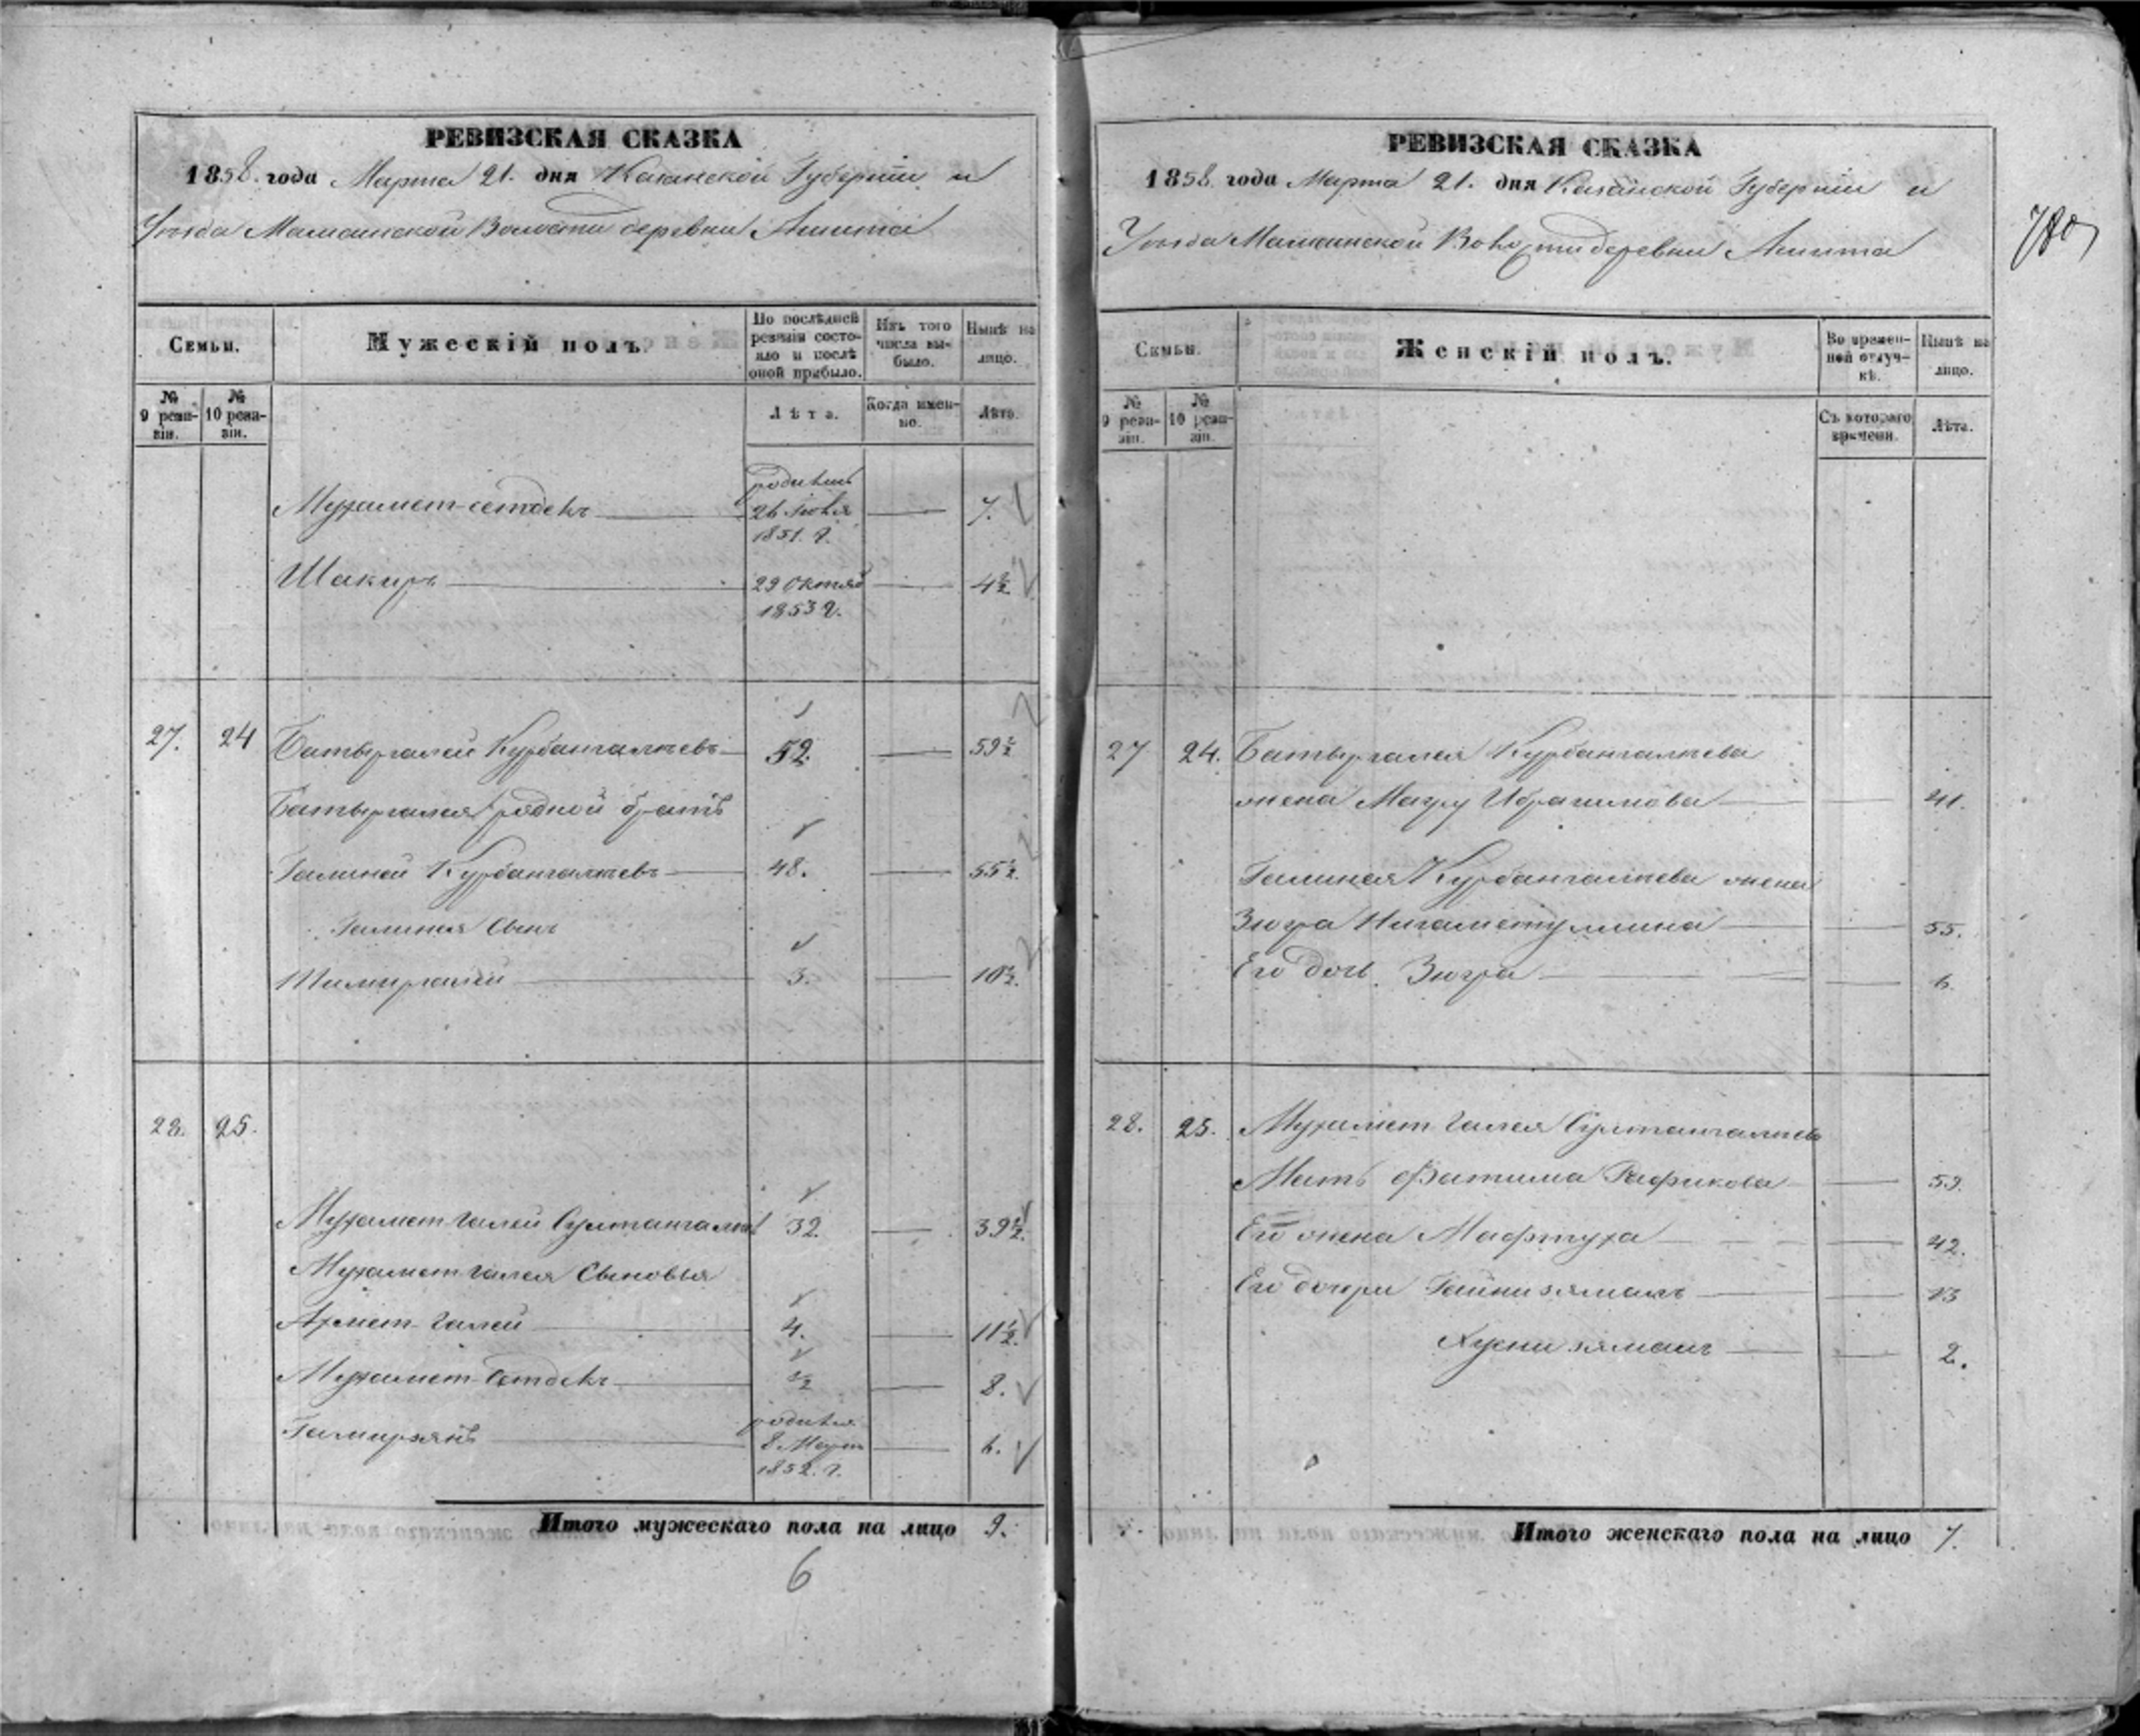 РЕВИЗСКАЯ СКАЗКА
1858 года Марта 21. дня Казанской Губерніи и
Уѣзда Мамсинской Волости деревни Ашита
Семьи.
Мужескій полъ.
По послѣдней ревизіи состояло и послѣ оной прибыло.
Изъ того числа выбыло.
Нынѣ на лицо.
№ 9 ревизіи.
№ 10 ревизіи.
Лѣта.
Когда именно.
Лѣта.
Мухамет-сетдекъ родился 26 1851. г. 7.
Шакиръ 29 Октяб 1853 г. 4½
27. 24 Батыргалей Курбангалѣевъ 52. 59½
Батыргалея родной братъ
Галиней Курбангалѣевъ 48. 55½
Галинея Сынъ
Тимиргалей 3. 10½.
28. 25.
Мухамет Галей Султангалѣевъ 32. 39½.
Мухамет Галея Сыновья
Ахмет Галей 4. 11½.
Мухамет-Сетдекъ ½ 8.
Гамирзянъ родился 8 Март 1852. г. 6.
Итого мужескаго пола на лицо 9.
6
РЕВИЗСКАЯ СКАЗКА
1858 года Марта 21. дня Казанской Губерніи и
Уѣзда Мамсинской Волости деревни Ашита
780
Семьи.
Женскій полъ.
Во временной отлучкѣ.
Нынѣ на лицо.
№ 9 ревизіи.
№ 10 ревизіи.
Съ котораго времени.
Лѣта.
27 24. Батыргалея Курбангалѣева
жена Магру Ибрагимова 41.
Галинея Курбангалѣева жена
Зюгра Нигаметуллина 55.
Его дочь Зюгра 6.
28. 25. Мухамет Галея Султангалѣева
Мать Фатима Рафикова 59.
Его жена Мафтуха 42.
Его дочери Гайнизямалъ 13
Хуснизямалъ 2.
Итого женскаго пола на лицо 7.